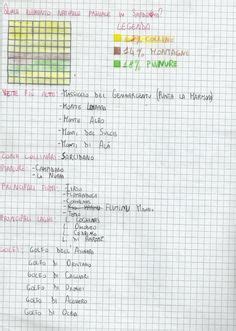 QUALE ELEMENTO NATURALE PREVALE IN SARDEGNA?
LEGENDA
COLLINE
14% MONTAGNE
18% PIANURE
VETTE PIÙ ALTE: - MASSICCIO DEL GENNARGENTU (PUNTA LA MARMORA)
- MONTE LINARA
- MONTE ALBO
- MONTI DEL SULCIS
- MONTI DI ALÀ
ZONA COLLINARI: SARCIDANO
PIANURE - CAMPIDANO
- LA NURRA
PRINCIPALI FIUMI: - TIRSO
- FLUMENDOSA
- COGHINAS
- FLUMINU MANNU
- TEMO
PRINCIPALI LAGHI: L. COGHINAS
L. OMODEO
L.
L. DI BARATZ
GOLFI: GOLFO DELL'ASINARA
GOLFO DI ORISTANO
GOLFO DI CAGLIARI
GOLFO DI OROSEI
GOLFO DI
GOLFO DI OLBIA